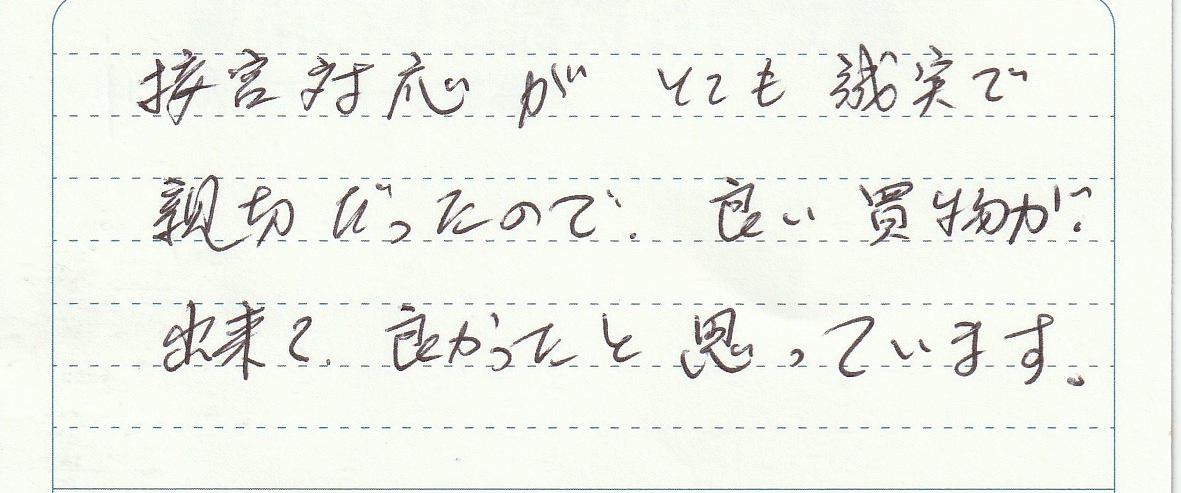 接客対応がとても誠実で
親切だったので、良い買物が
出来て、良かったと思っています。